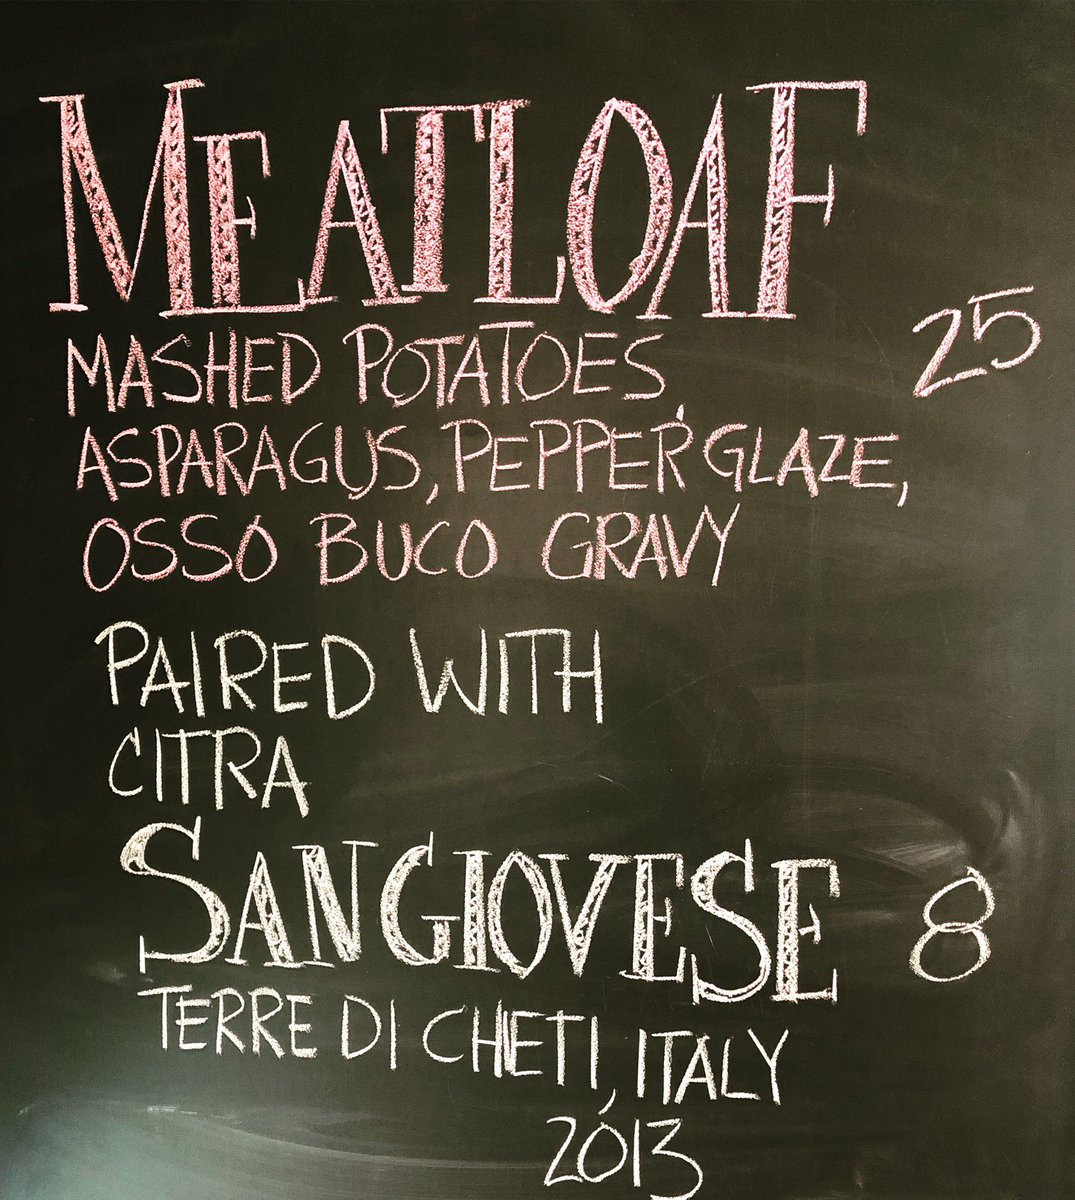 MEATLOAF 25
MASHED POTATOES,
ASPARAGUS, PEPPER GLAZE,
OSSO BUCO GRAVY
PAIRED WITH
CITRA
SANGIOVESE 8
TERRE DI CHETI, ITALY
2013